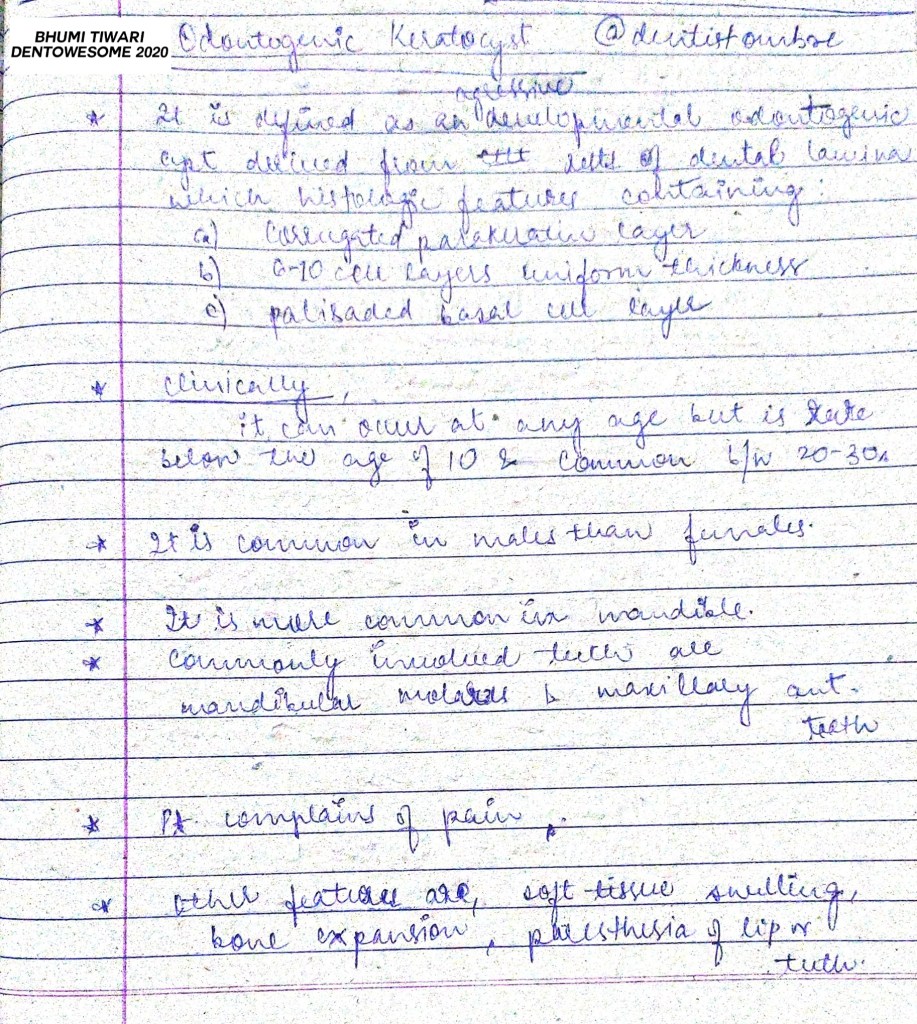 BHUMI TIWARI
DENTOWESOME 2020
Odontogenic Keratocyst @dentistombre
agressive
* It is defined as an developmental odontogenic
cyst derived from of dental lamina
which histologic features containing:
a) Corrugated parakeratin layer
b) 6-10 cell layers uniform thickness
c) palisaded basal cell layer
* Clinically,
it can occur at any age but is rare
below the age of 10 & common b/w 20-30
* It is common in males than females.
* It is more common in mandible.
* Commonly involved teeth are
mandibular molars & maxillary ant.
teeth
* Pt complains of pain
* Other features are, soft tissue swelling,
bone expansion, paresthesia of lip or
teeth.